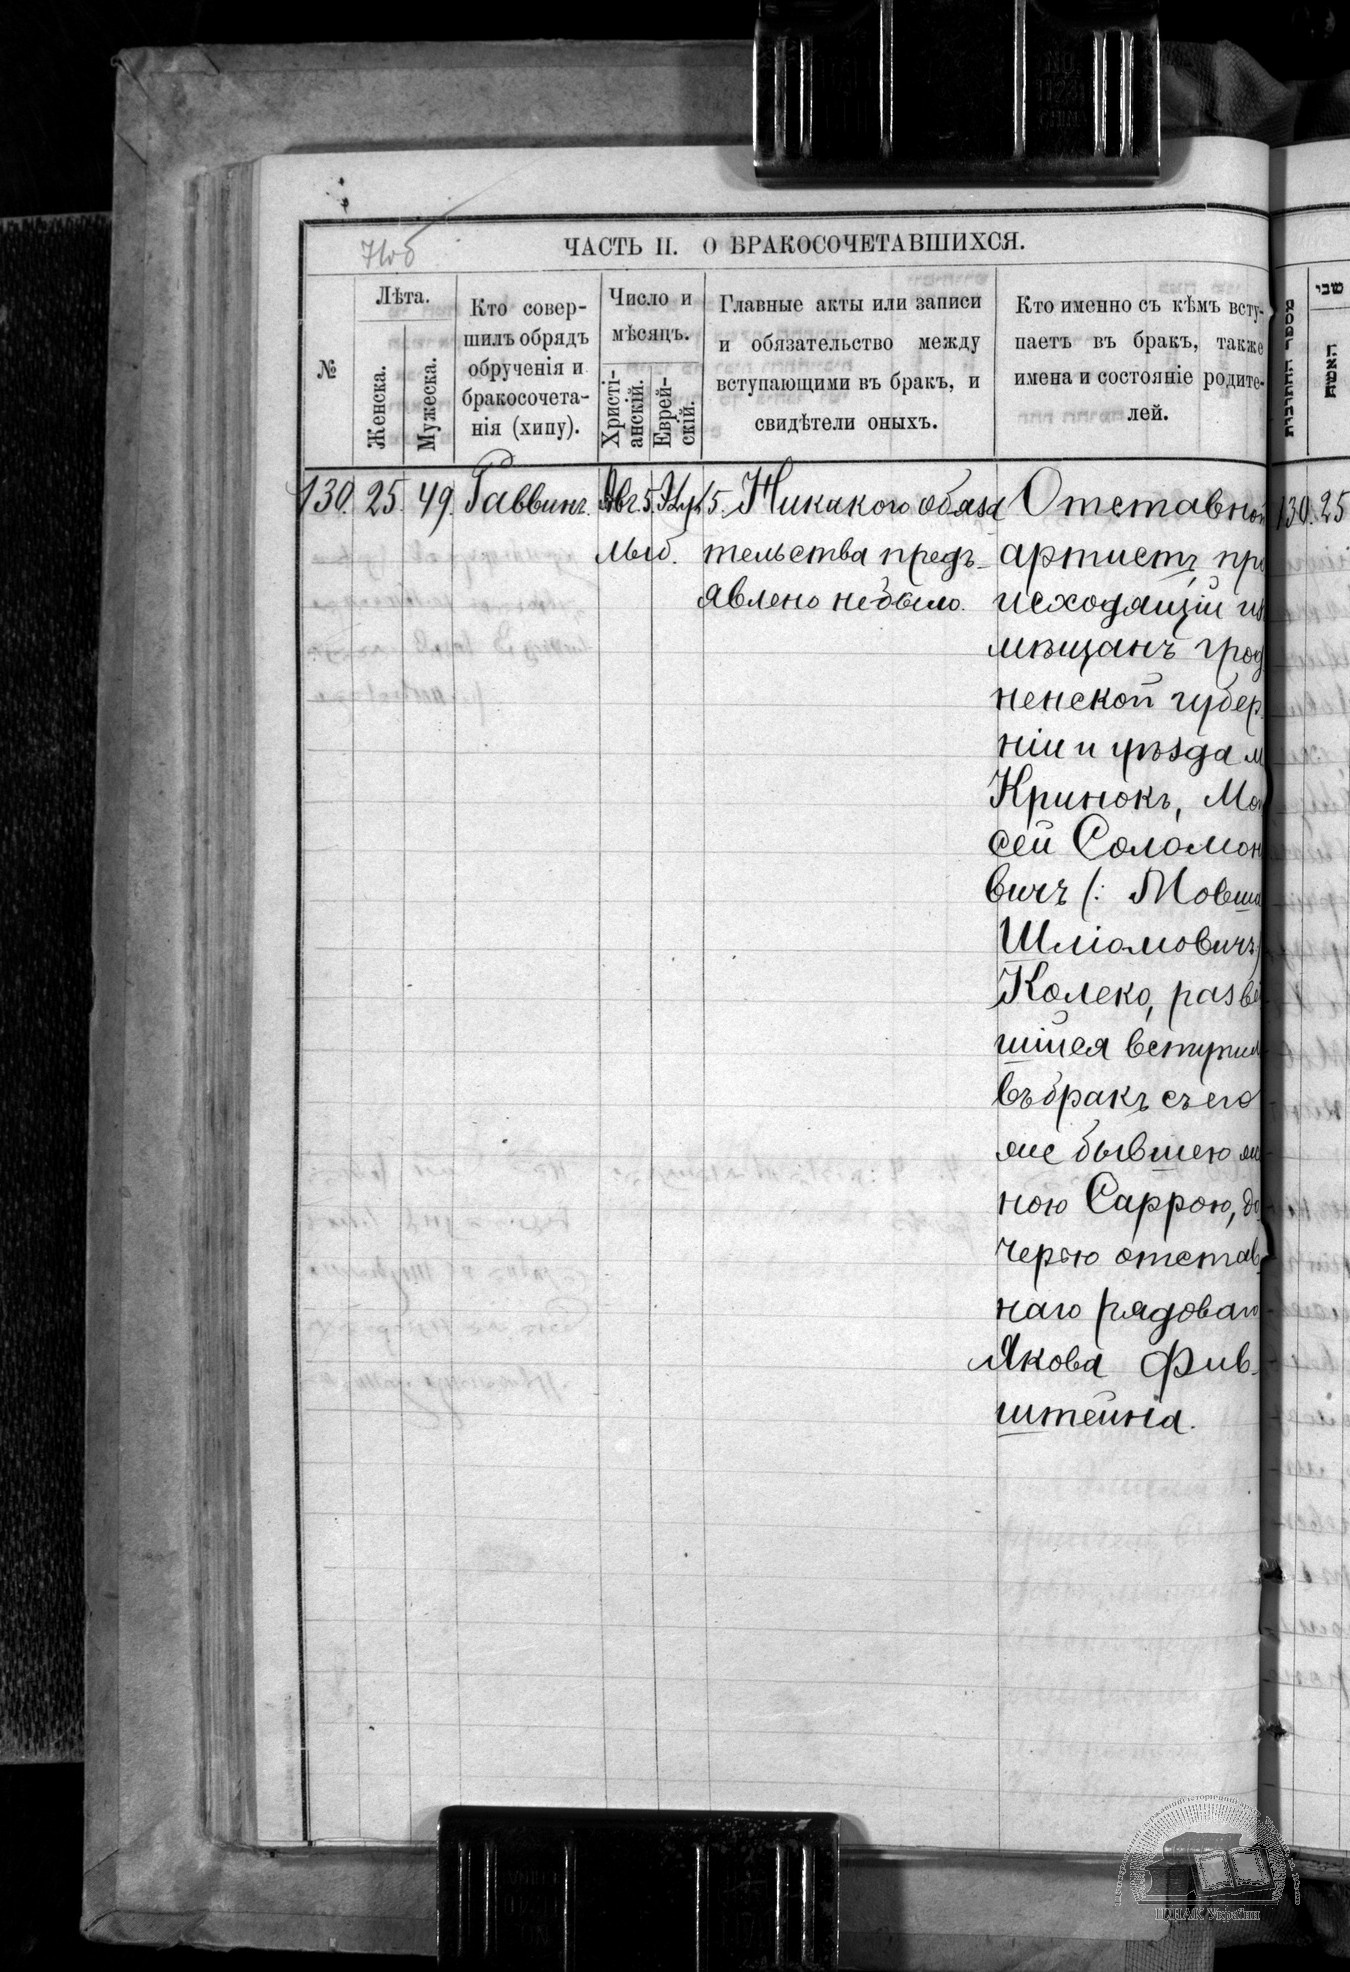 ЧАСТЬ II. О БРАКОСОЧЕТАВШИХСЯ.
№
Лѣта.
Женска.
Мужеска.
Кто совер-
шилъ обрядъ
обрученія и
бракосочета-
нія (хипу).
Число и
мѣсяцъ.
Христі-
анскій.
Еврей-
скій.
Главные акты или записи
и обязательство между
вступающими въ бракъ, и
свидѣтели оныхъ.
Кто именно съ кѣмъ всту-
паетъ въ бракъ, также
имена и состояніе родите-
лей.
130. 25. 49. Раввинъ. Авг. 5.
15. Никакого обяза
тельства предъ-
явлено небыло.
Отставной
артистъ, про
исходящій из
мѣщанъ грод
ненской губер
ніи и уѣзда м
Кринокъ, Мои
сей Соломон
вичъ (: Мовша
Шліомовичъ
Колеко, развё
шійся вступил
въ бракъ съ его
же бывшею же
ною Саррою, до
черью отстав
наго рядоваго
Якова Фив-
штейна.
מספר החתונות
שני
האשה
130. 25
ЦДІАК України